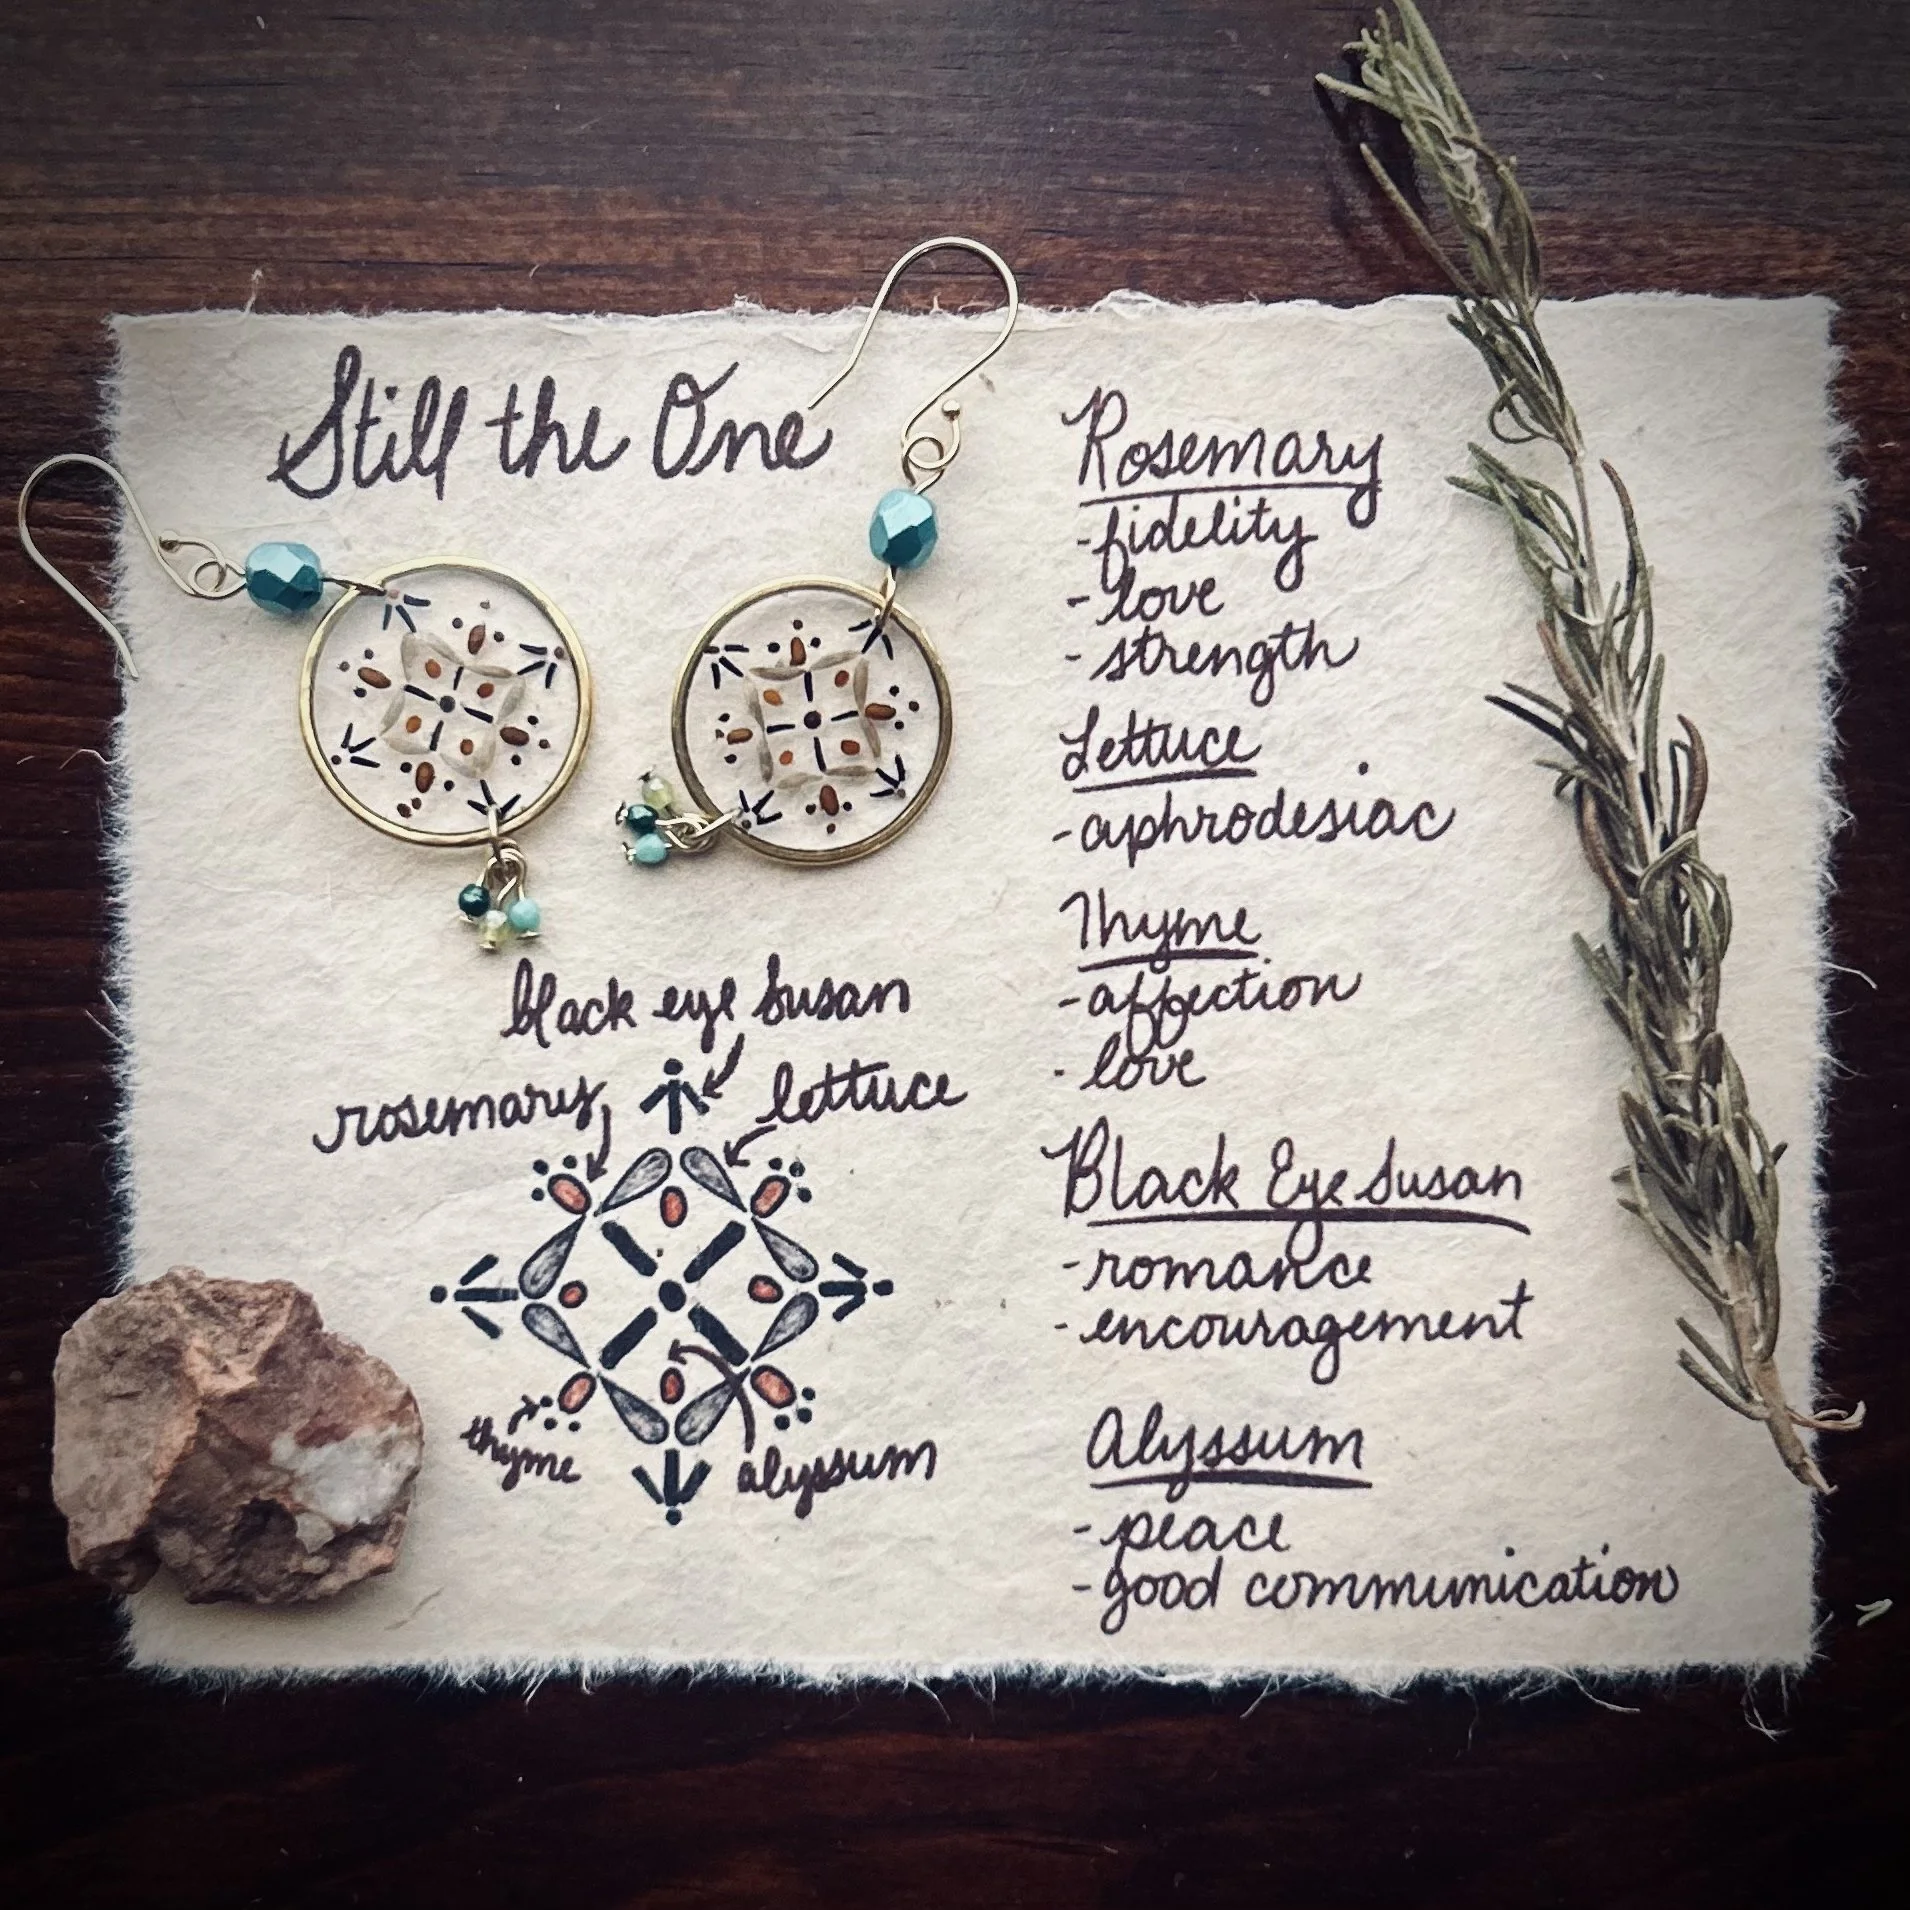 Still the One
black eye Susan
rosemary
lettuce
thyme
alyssum
Rosemary
-fidelity
-love
-strength
Lettuce
-aphrodesiac
Thyme
-affection
-love
Black Eye Susan
-romance
-encouragement
Alyssum
-peace
-good communication